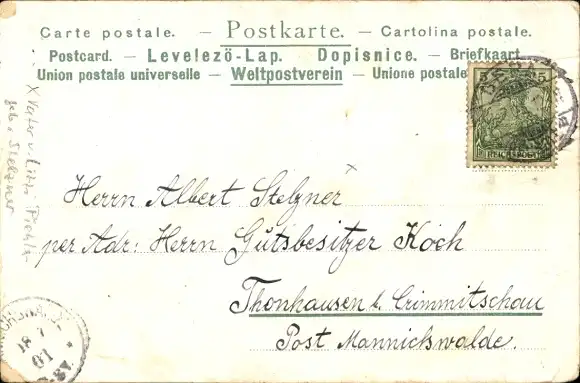 Carte postale. — Postkarte. — Cartolina postale.
Postcard. — Levelező-Lap. Dopisnice. — Briefkaart
Union postale universelle — Weltpostverein — Unione postale
5 5
REICHSPOST
Herrn Albert Stelzner
per Adr: Herrn Gutsbesitzer Koch
Thonhausen b. Crimmitschau
Post Mannichswalde.
X Vater v.
geb. Stelzner
18 7
01